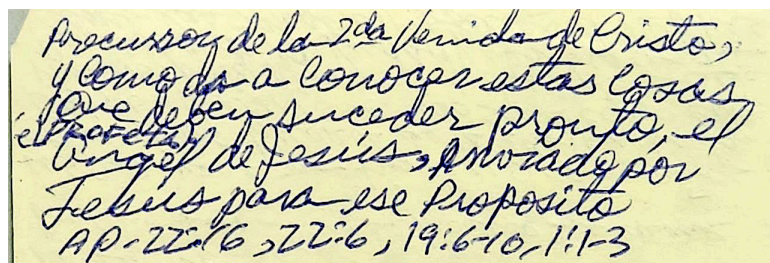 Precursor de la 2da Venida de Cristo,
y como da a conocer estas cosas
que deben suceder pronto, el
(el PROFETA)
Angel de Jesús, enviado por
Jesús para ese Proposito
AP-22:16, 22:6, 19:6-10, 1:1-3